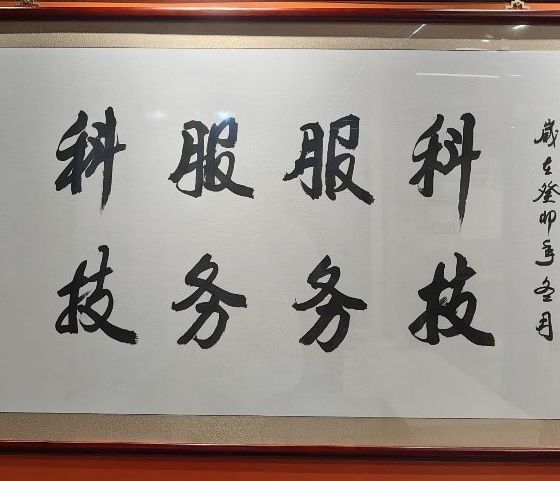 岁在癸卯年冬月
科技
服务
服务
科技